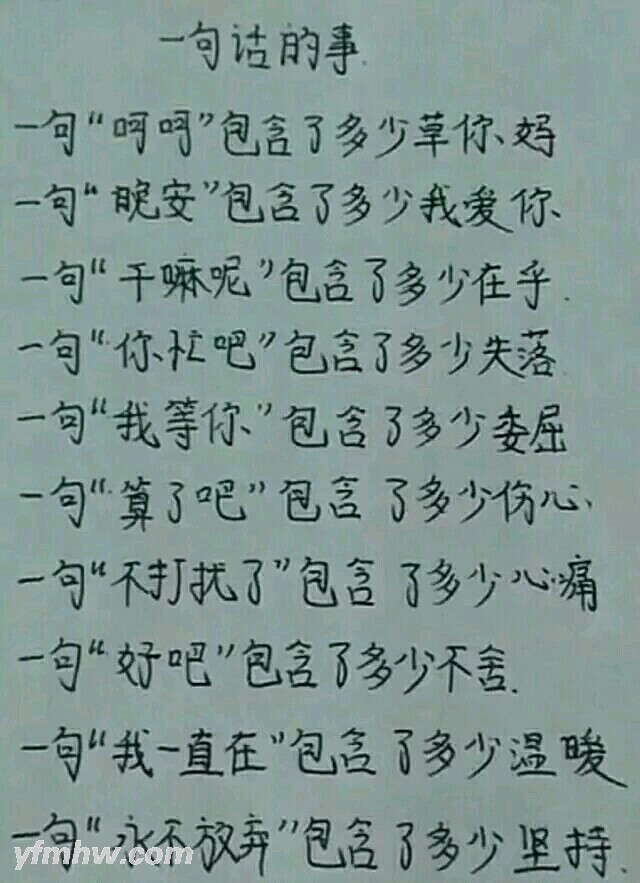 一句话的事.
一句“呵呵”包含了多少草你妈
一句“晚安”包含了多少我爱你
一句“干嘛呢”包含了多少在乎.
一句“你忙吧”包含了多少失落
一句“我等你”包含了多少委屈
一句“算了吧”包含了多少伤心
一句“不打扰了”包含了多少心痛
一句“好吧”包含了多少不舍.
一句“我一直在”包含了多少温暖
一句“永不放弃”包含了多少坚持.
yfmhw.com